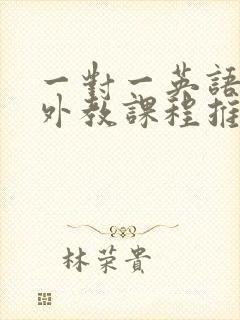 一對一英語
外教課程推
林荣貴